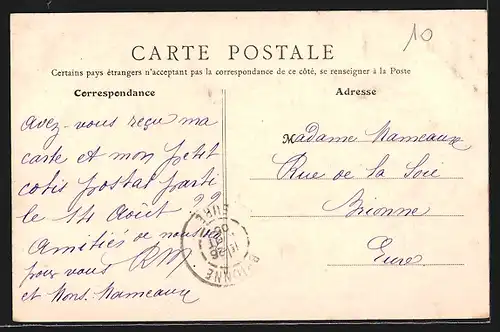 10
CARTE POSTALE
Certains pays étrangers n'acceptant pas la correspondance de ce côté, se renseigner à la Poste
Correspondance
avez-vous reçu ma
carte et mon petit
colis postal parti
le 14 Août ??
Amitiés de nous
pour vous RM
et Mons. Mameaux
Adresse
Madame Mameaux
Rue de la Soie
Brionne
Eure
BRIONNE
EURE